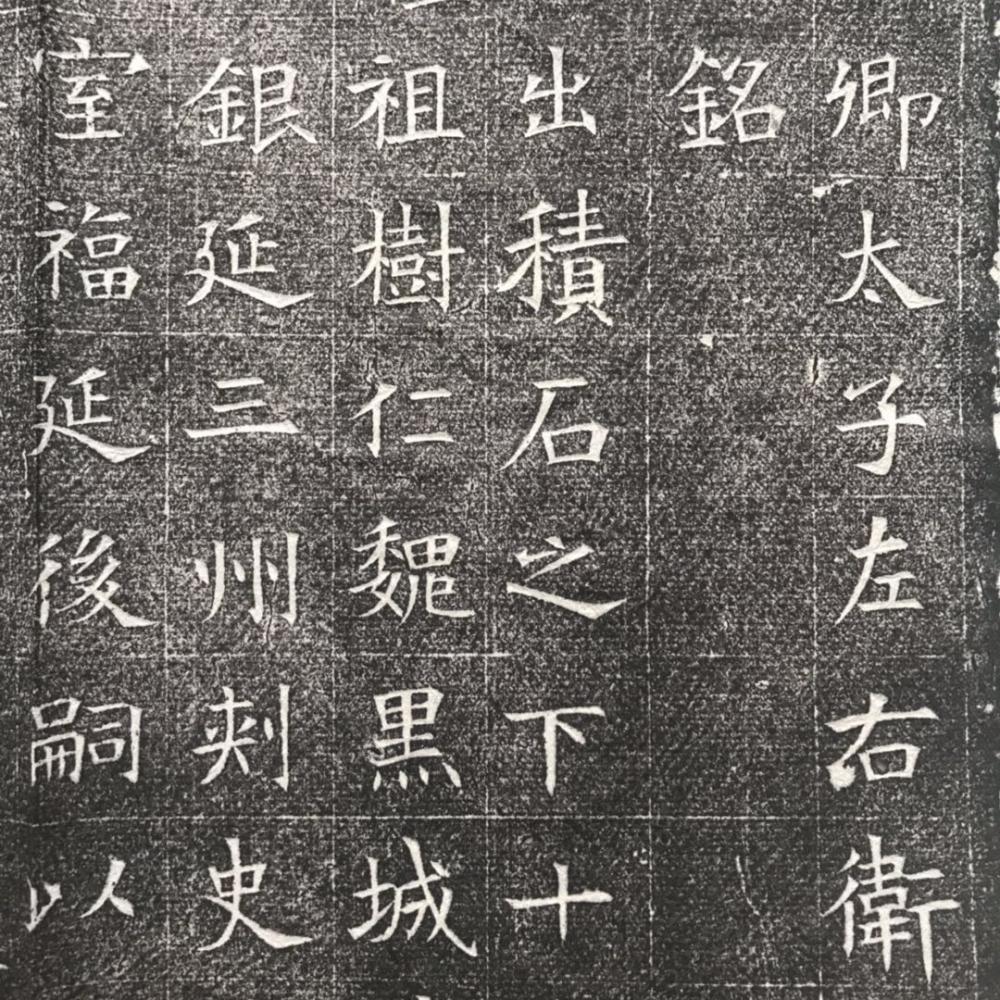 卿太子左右衛
銘
出積石之下十
祖樹仁魏黑城
銀延三州刺史
室福延後嗣以